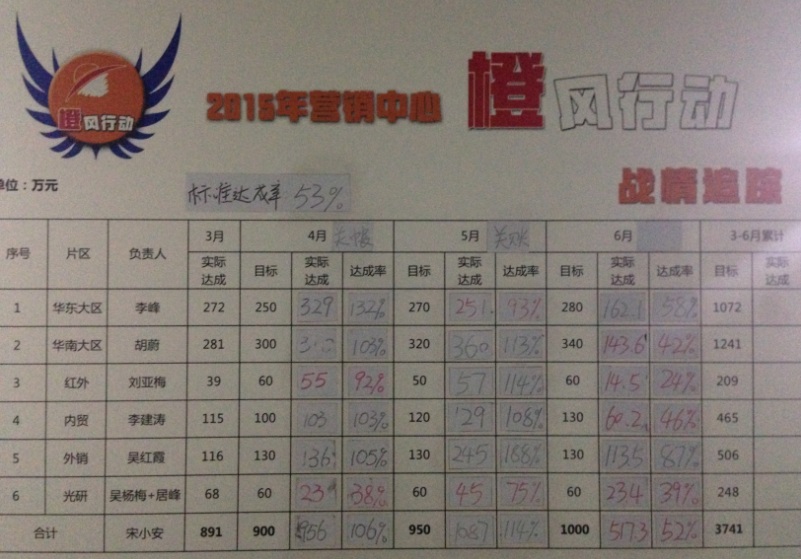 橙风行动
2015年营销中心
橙风行动
单位：万元
标准达成率 53%
战情追踪
序号 片区 负责人 3月 4月 关账 5月 关账 6月 3-6月累计
实际达成 目标 实际达成 达成率 目标 实际达成 达成率 目标 实际达成 达成率 目标 实际达成
1 华东大区 李峰 272 250 329 132% 270 251 93% 280 162.1 58% 1072
2 华南大区 胡蔚 281 300 103% 320 360 113% 340 143.6 42% 1241
3 红外 刘亚梅 39 60 55 92% 50 57 114% 60 14.5 24% 209
4 内贸 李建涛 115 100 103 103% 120 129 108% 130 60.2 46% 465
5 外销 吴红霞 116 130 136 105% 130 245 188% 130 113.5 87% 506
6 光研 吴杨梅+居峰 68 60 23 38% 60 45 75% 60 23.4 39% 248
合计 宋小安 891 900 956 106% 950 1087 114% 1000 517.3 52% 3741